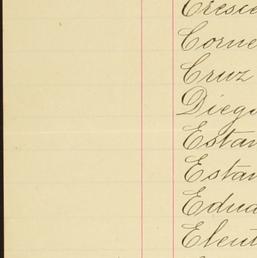 Cresce
Corne
Cruz
Diego
Estan
Estan
Edua
Eleut